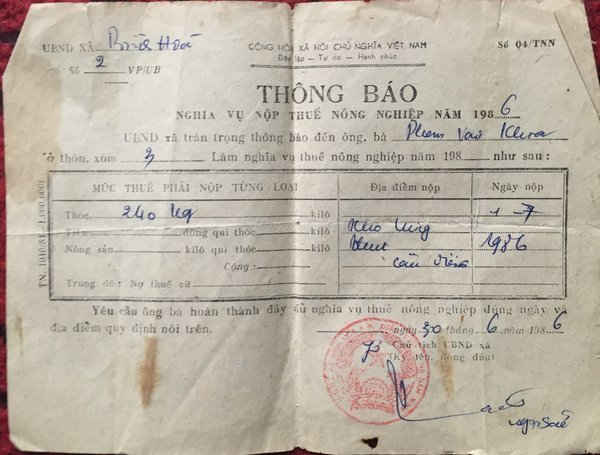 UBND XÃ Bình Hoà
CỘNG HÒA XÃ HỘI CHỦ NGHĨA VIỆT NAM
Số 04/TNN
Số 2 VP/UB
Độc lập - Tự do - Hạnh phúc
THÔNG BÁO
NGHĨA VỤ NỘP THUẾ NÔNG NGHIỆP NĂM 1986
UBND xã trân trọng thông báo đến ông, bà Phạm Văn Khoa
ở thôn, xóm 3 Làm nghĩa vụ thuế nông nghiệp năm 198 như sau:
MỨC THUẾ PHẢI NỘP TỪNG LOẠI
Địa điểm nộp
Ngày nộp
Thóc 240 kg kilô
1-7
đồng qui thóc kilô
Kho
1986
Nông sản kilô qui thóc kilô
Cộng:
Trong đó: Nợ thuế cũ
Yêu cầu ông bà hoàn thành đầy đủ nghĩa vụ thuế nông nghiệp đúng ngày và
địa điểm quy định nói trên.
ngày 30 tháng 6 năm 1986
Chủ tịch UBND xã
(Ký tên, đóng dấu)